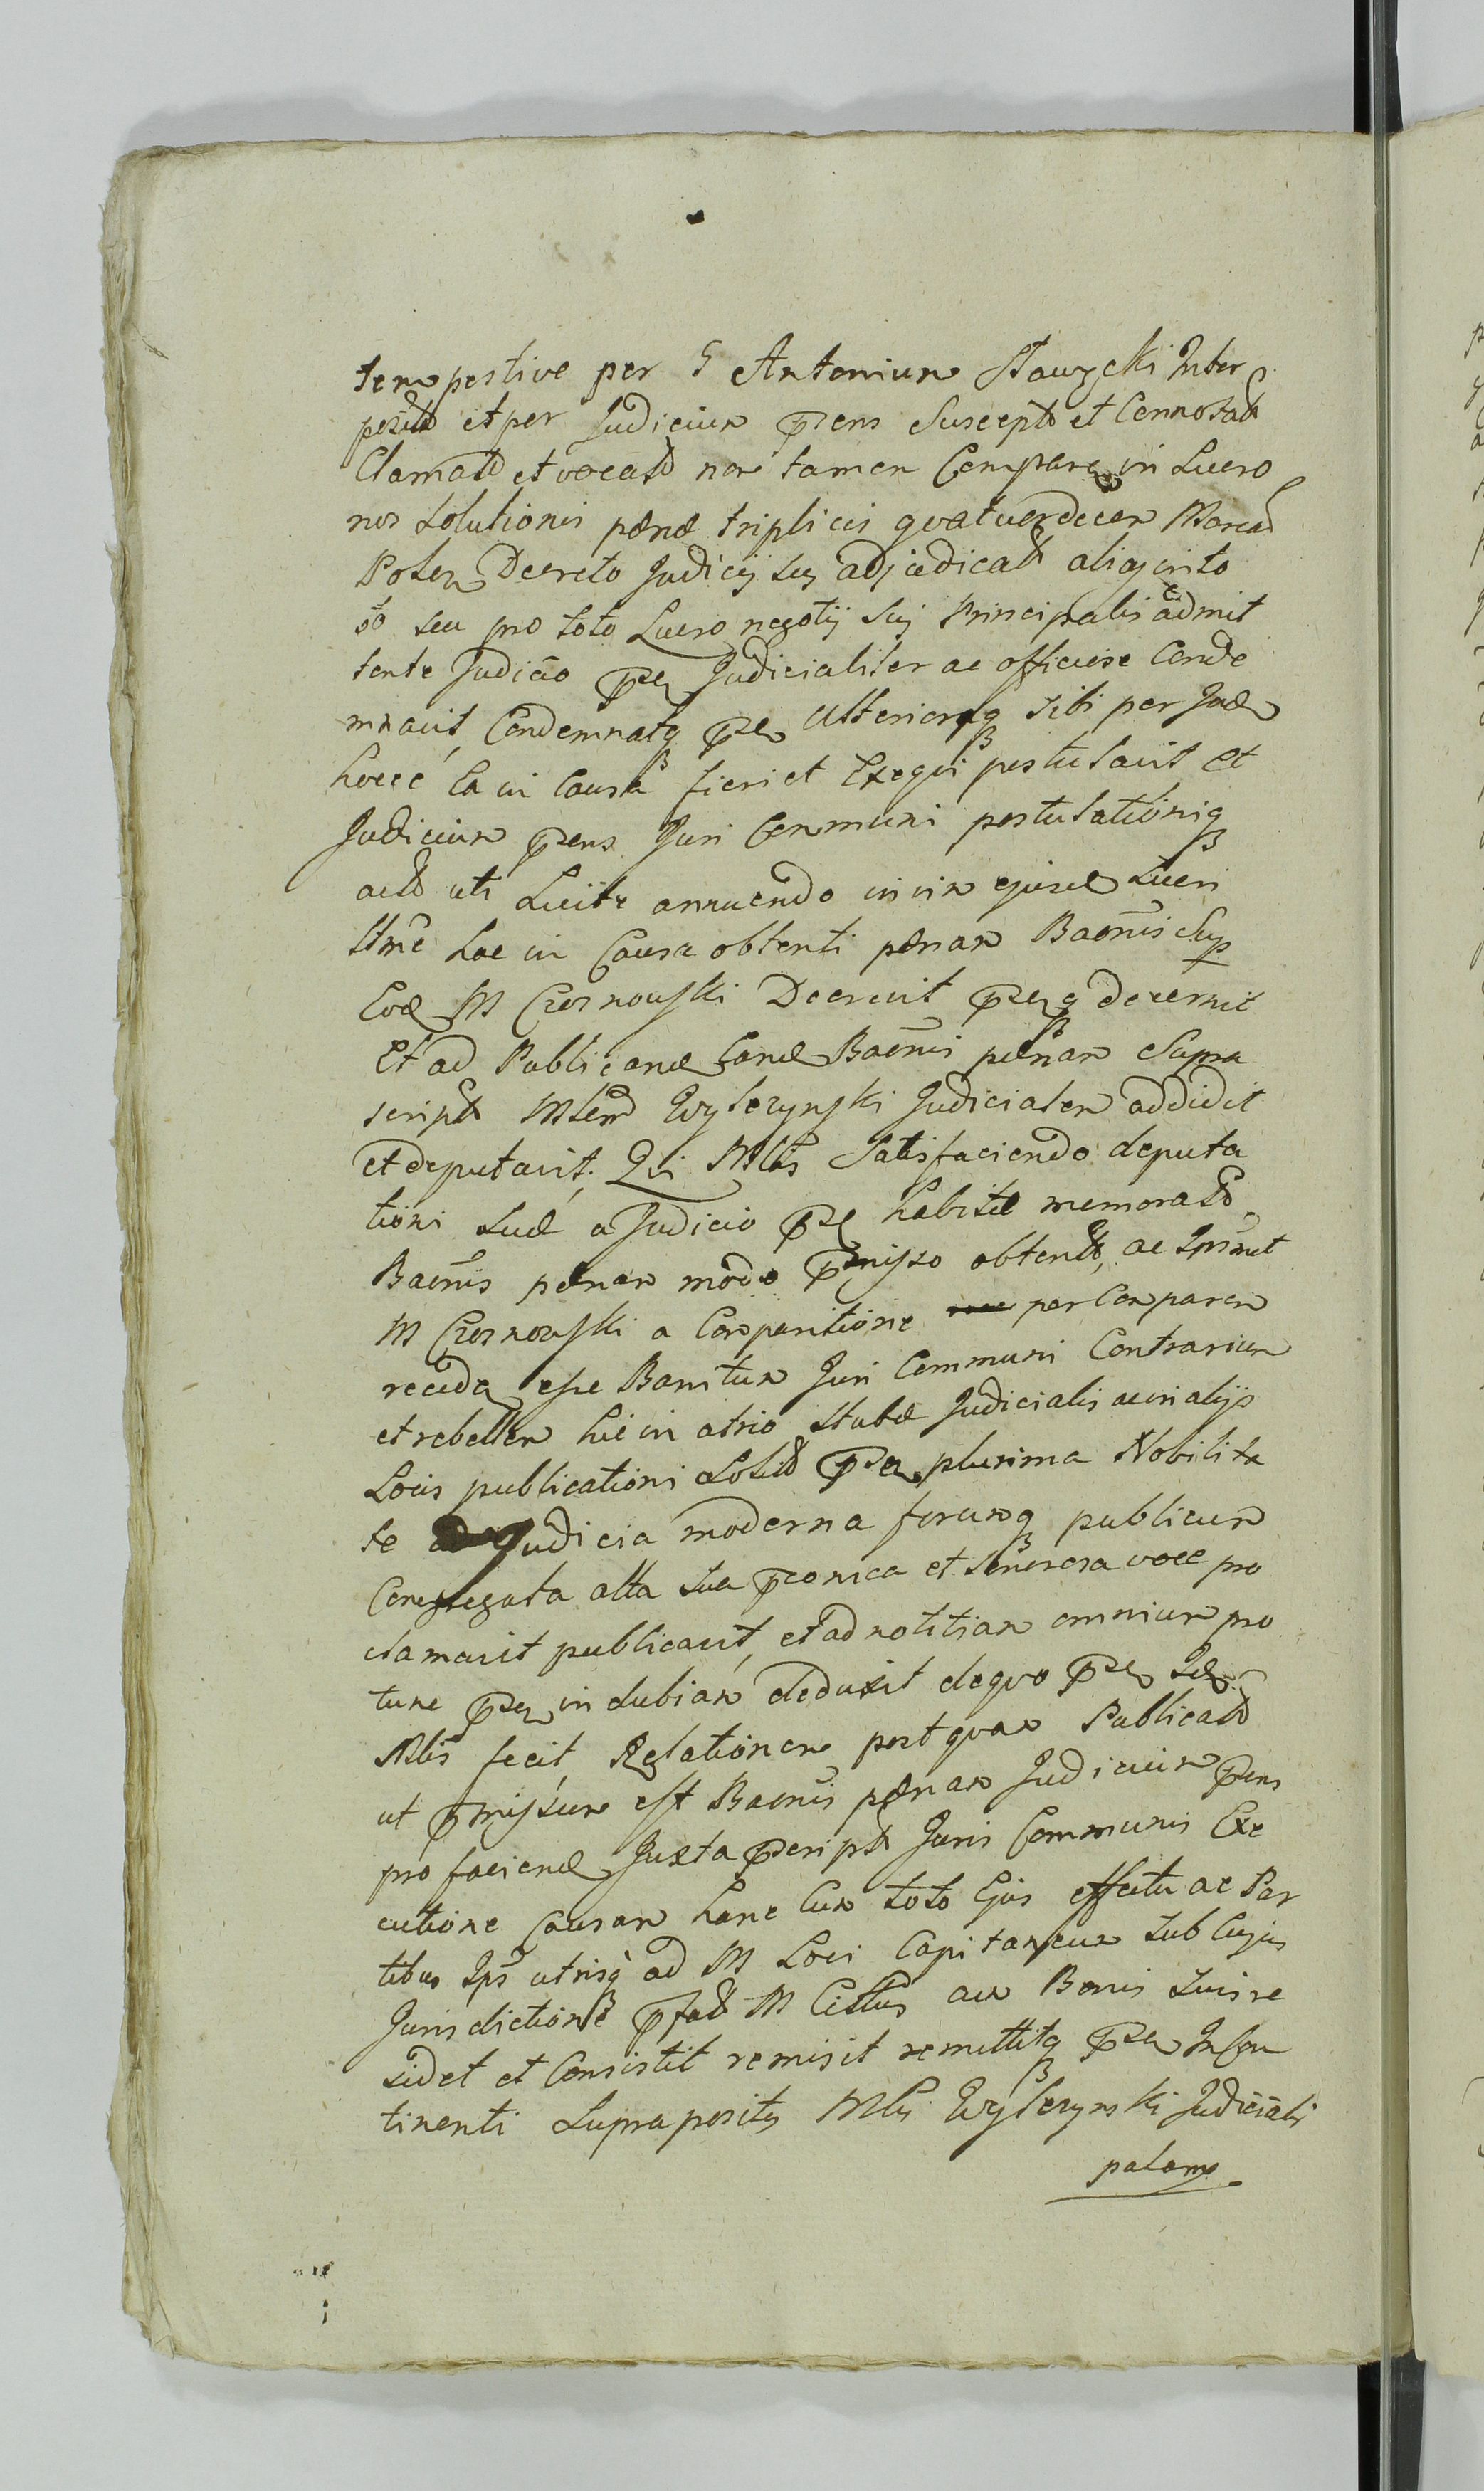 tempestive per G Antonium Stawycki Inter
posit et per Judicium prens Suscept et Connotat
Clamat et vocat non tamen Comparen in Lucro
non Solutionis pænæ triplicis qvatuordecem Marcar
Polen Decreto Judicij sui adjudicat aliaq in to
to seu pro toto Lucro negotij Sui Principalis admit
tente Judicio pre Judicialiter ac officiose Conde
mnavit, Condemnatq pre Ulteriorq sibi per Jud
hocce Ea in Causa fieri et Exeqvi postulavit Et
Judicium prens Juri Communi postulationiq
act uti Licite annuendo in vim ejusd Lucri
Ittme hac in Causa obtenti pænam Baonis Sup
Eod M Czosnowski Decrevit preq decernit
Et ad Publicand Eand Baonis pænam Supra
script Mlem Wylezynski Judicialem addidit
et deputavit. Qvi Mlis Satisfaciendo deputa
tioni Suæ a Judicio pre habitæ memorat
Baonis pænam modo præmisso obtent, ac Ipsmet
M Czosnowski a Comparitione per Comparen
receden esse Banitum Juri Communi Contrarium
et rebellem hic in atrio Stubæ Judicialis ac in alijs
Locis publicationi Solit pre plurima Nobilita
te ad Judicia moderna forumq publicum
Congregata alta Sua præconica et Sonorosa voce pro
clamavit publicavit, et ad notitiam omnium pro
tunc pre indubiam deduxit deqvo pre Id
Mlis fecit Relationem postqvam Publicat
ut præmissum est Baonis pænam Judicium prens
pro faciend Juxta præscript Juris Communis Exe
cutione Causam hanc Cum toto Ejus effectu ac Par
tibus Ips utrisq ad M Loci Capitaneum Sub Cujus
Jurisdictione præfat M Cittus cum Bonis Suis re
sidet et Consistit remisit remittitq pre In Con
tinenti Suprapositus Mlis Wylezynski Judicialis
palam